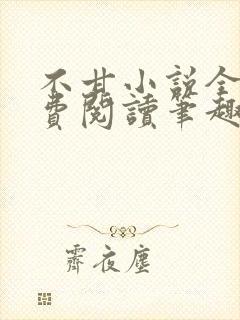 不甘小说全
費閱讀筆趣
霽夜塵